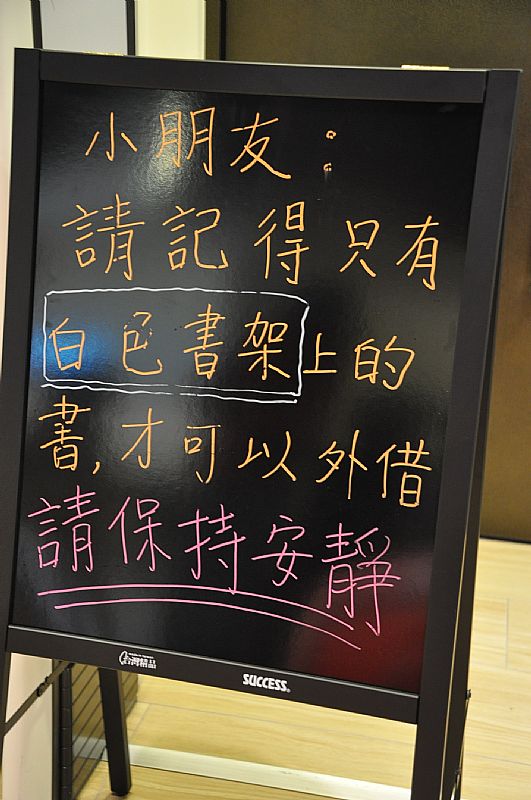 小朋友：
請記得只有
白色書架上的
書,才可以外借
請保持安靜
台灣精品
SUCCESS